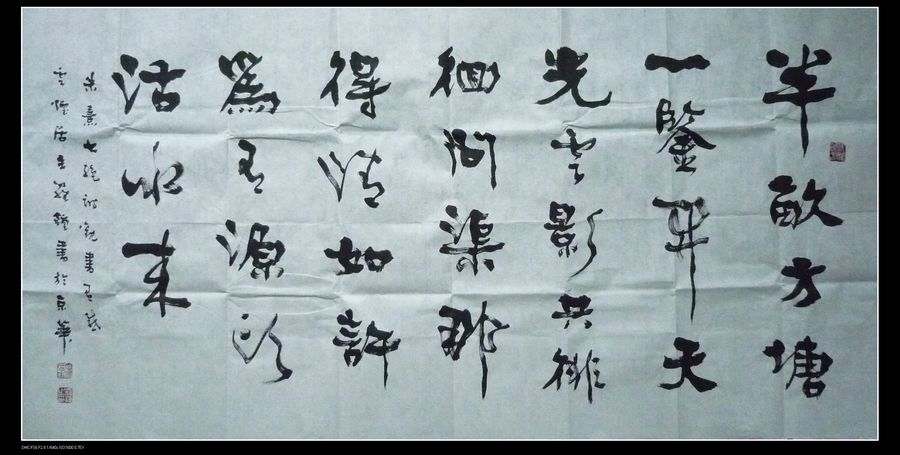 半畝方塘
一鑒開天
光雲影共徘
徊問渠那
得清如許
為有源頭
活水来
朱熹七絶詩觀書有感
居主書於京華